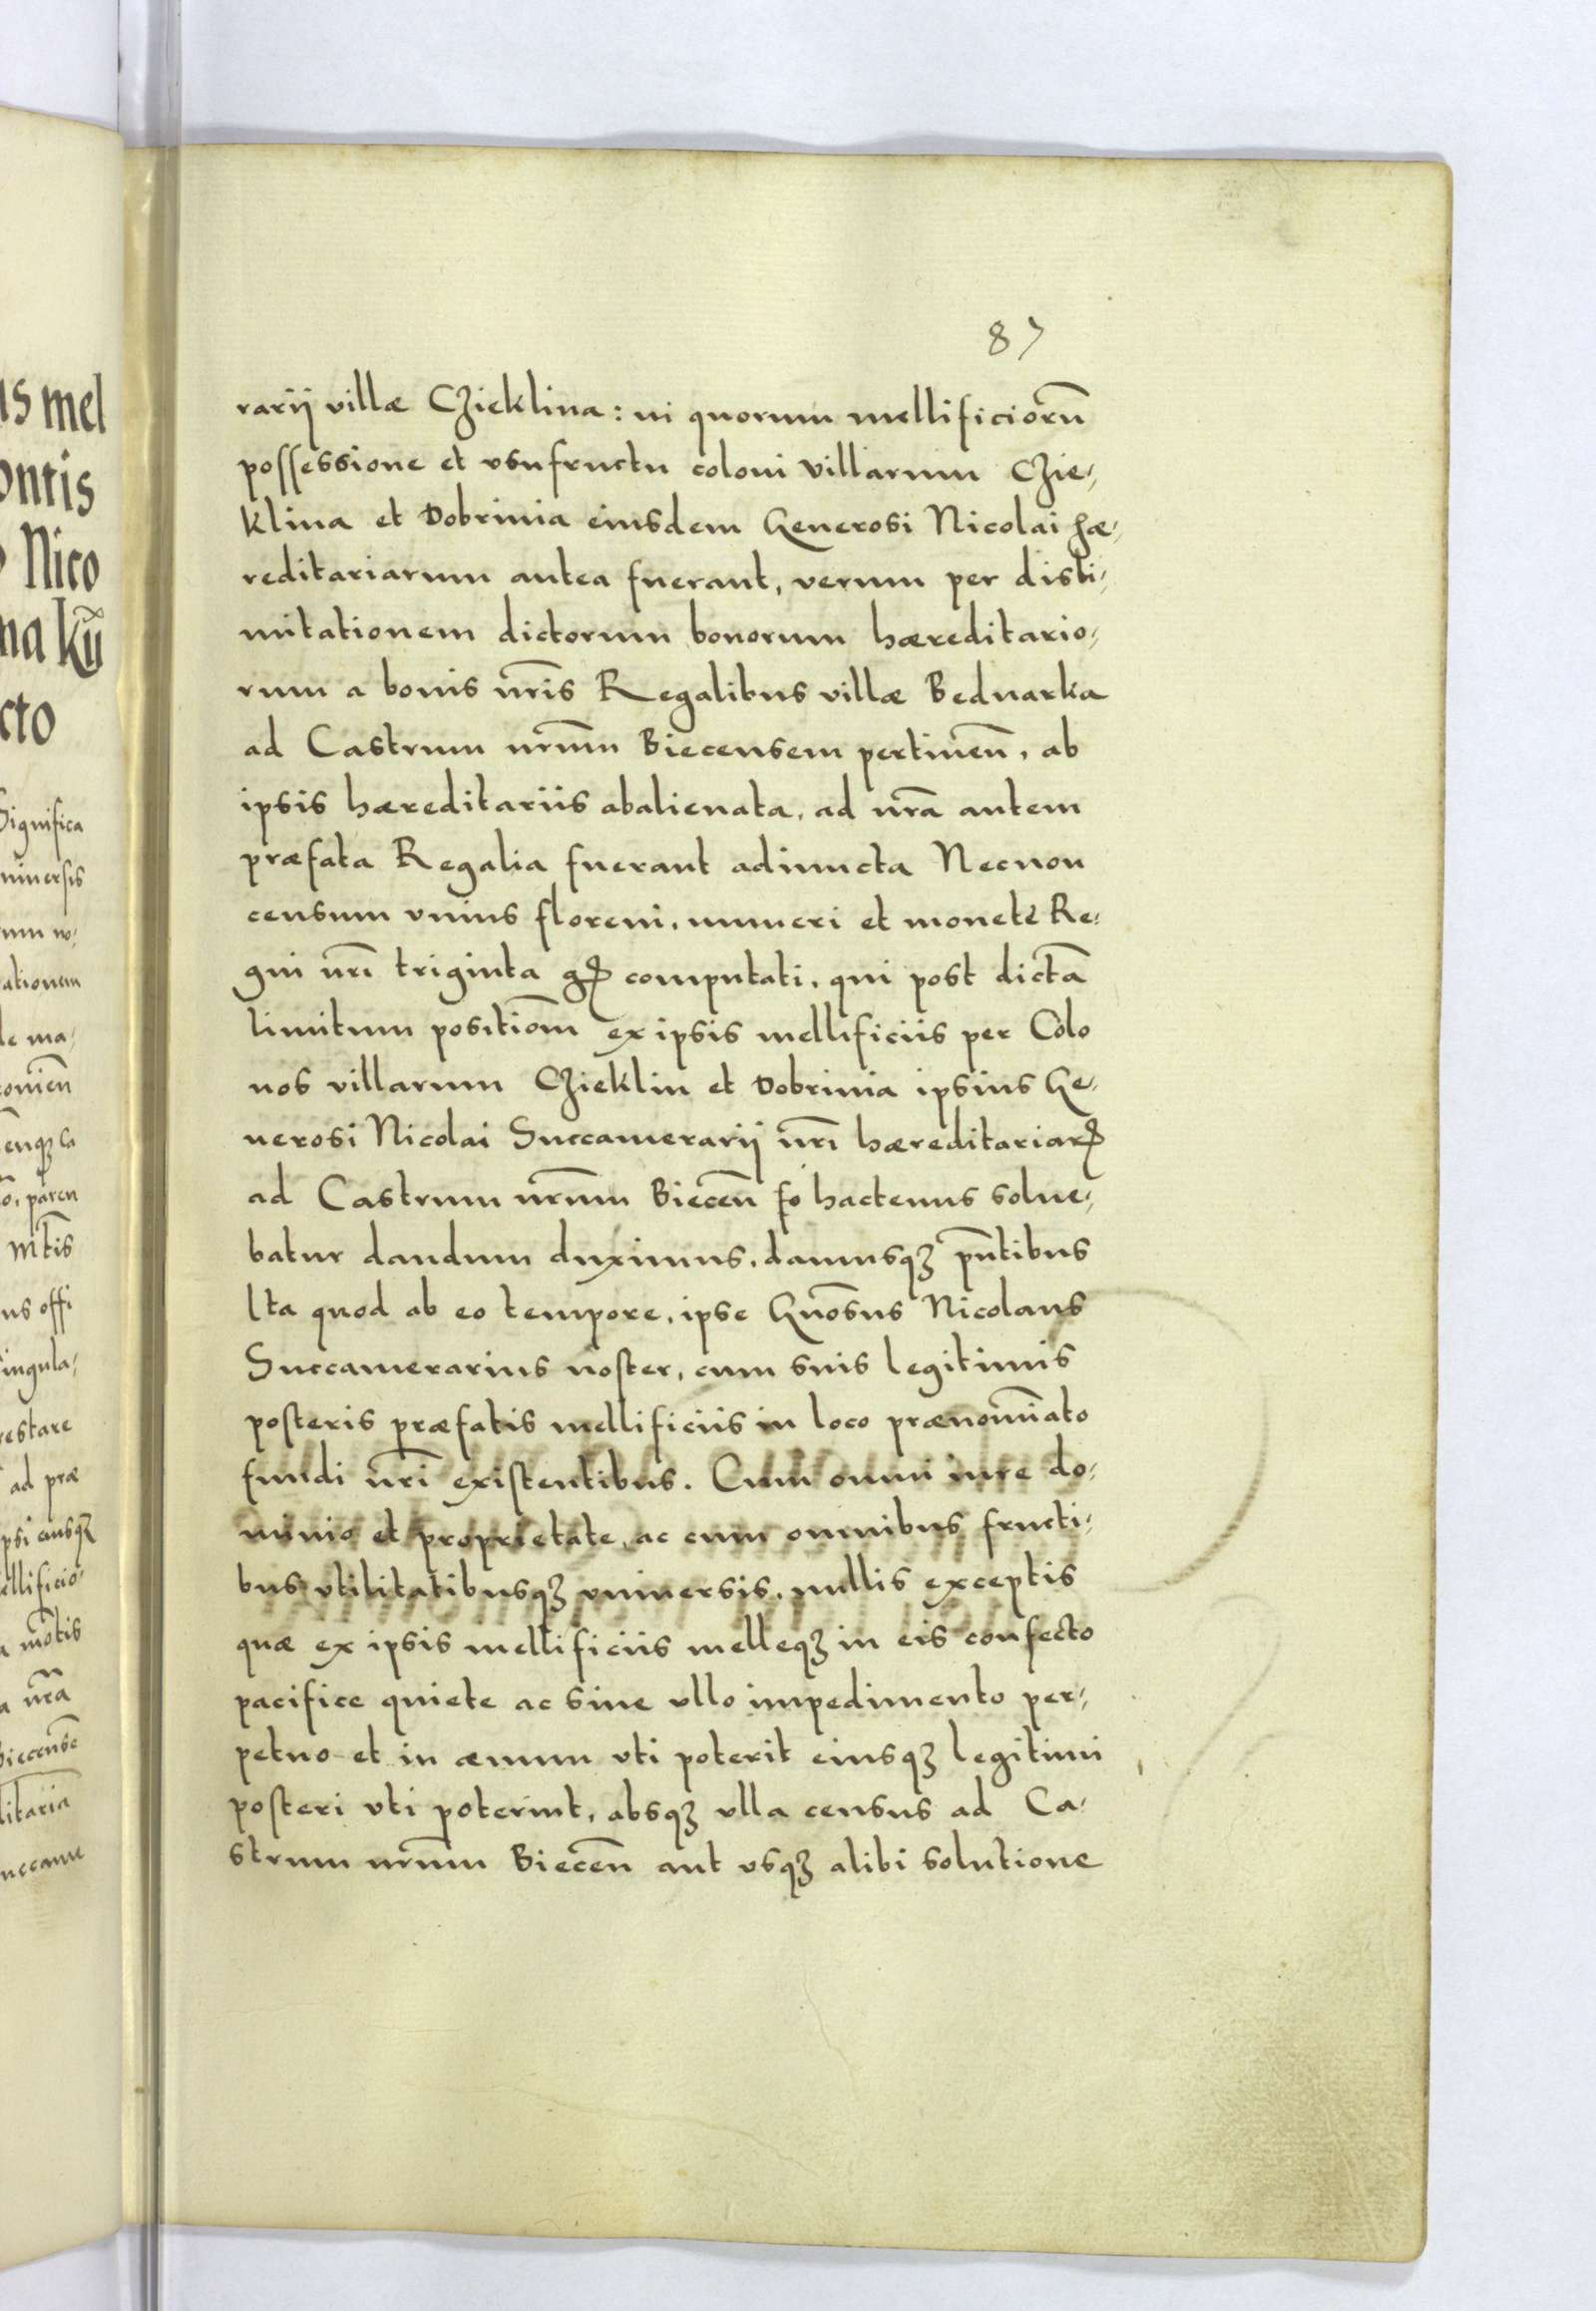 87
rarij villæ Czieklina: in quorum mellificiorū
possessione et vsufructu coloni villarum Czie-
klina et Dobrinia eiusdem Generosi Nicolai hæ-
reditariarum antea fuerant, verum per disli-
mitationem dictorum bonorum hæreditario-
rum a bonis nr̃is Regalibus villæ Bednarka
ad Castrum nr̃um Biecensem pertineñ, ab
ipsis hæreditariis abalienata, ad nr̃a autem
præfata Regalia fuerant adiuncta Necnon
censum vnius floreni, numeri et monetę Re-
gni nr̃i triginta gꝝ computati, qui post dictã
limitum positiom̃ ex ipsis mellificiis per Colo
nos villarum Czieklin et Dobrinia ipsius Ge-
nerosi Nicolai Succamerarij nr̃i hæreditariaꝝ
ad Castrum nr̃um Bieceñ hactenus solue-
batur dandum duximus, damusqꝫ pñtibus
Ita quod ab eo tempore, ipse Gnõsus Nicolaus
Succamerarius noster, cum suis legitimis
posteris præfatis mellificiis in loco prænomĩato
fundi nr̃i existentibus. Cum omni iure do-
minio et proprietate, ac cum omnibus fructi-
bus vtilitatibusqꝫ vniuersis, nullis exceptis
quæ ex ipsis mellificiis melleqꝫ in eis confecto
pacifice quiete ac sine vllo impedimento per-
petuo et in æuum vti poterit eiusqꝫ legitimi
posteri vti poterint, absqꝫ vlla census ad Ca-
strum nr̃um Bieceñ aut vsqꝫ alibi solutione
is mel
ontis
Nico
na kũ
cto
Significa
niuersis
ationem
le ma-
enqꝫ la
paren
mtĩs
us offi
ingula-
restare
ad præ
psi eiusqꝫ
ellificio-
a nr̃a
Biecense
ditaria
uccame